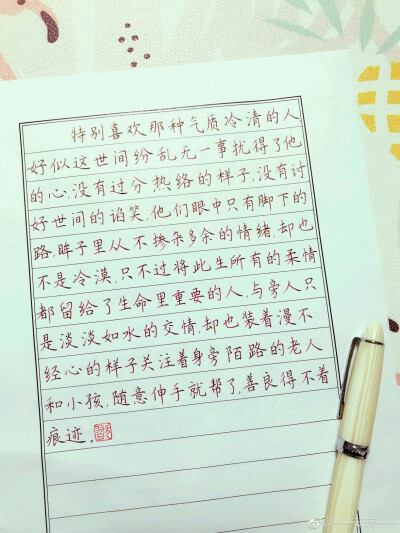 特别喜欢那种气质冷清的人
好似这世间纷乱无一事扰得了他
的心,没有过分热络的样子,没有讨
好世间的谄笑,他们眼中只有脚下的
路,眸子里从不掺杂多余的情绪,却也
不是冷漠,只不过将此生所有的柔情
都留给了生命里重要的人,与旁人只
是淡淡如水的交情,却也装着漫不
经心的样子关注着身旁陌路的老人
和小孩,随意伸手就帮了,善良得不着
痕迹。